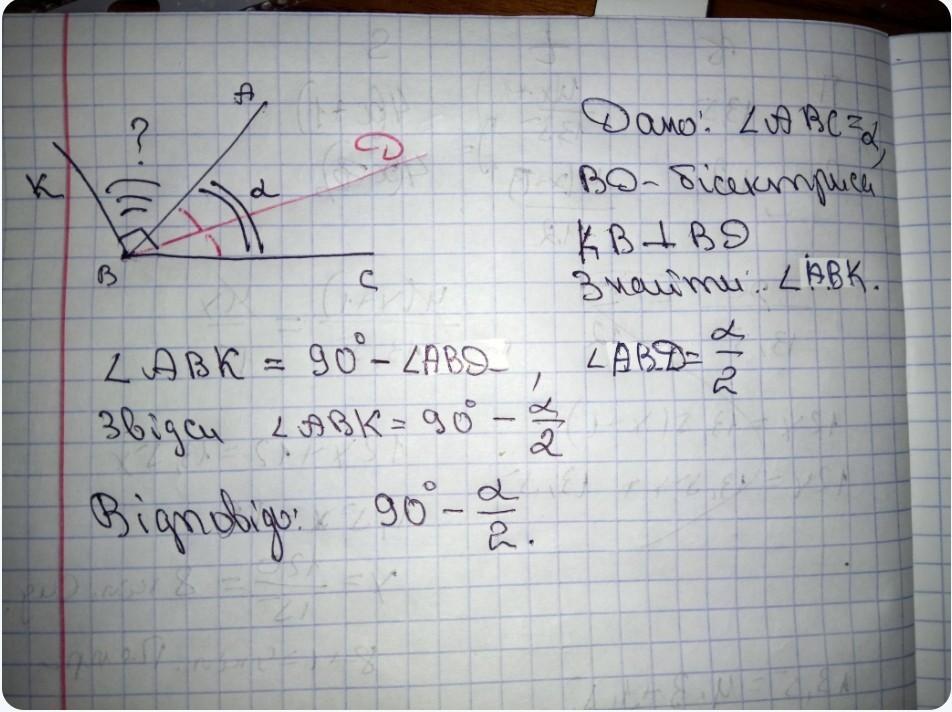 A
?
K
D
α
B
C
Дано: ∠ABC=α,
BD - бісектриса
KB⊥BD
Знайти: ∠ABK.
∠ABK = 90° - ∠ABD, ∠ABD = α/2
Звідси ∠ABK = 90° - α/2
Відповідь: 90° - α/2.